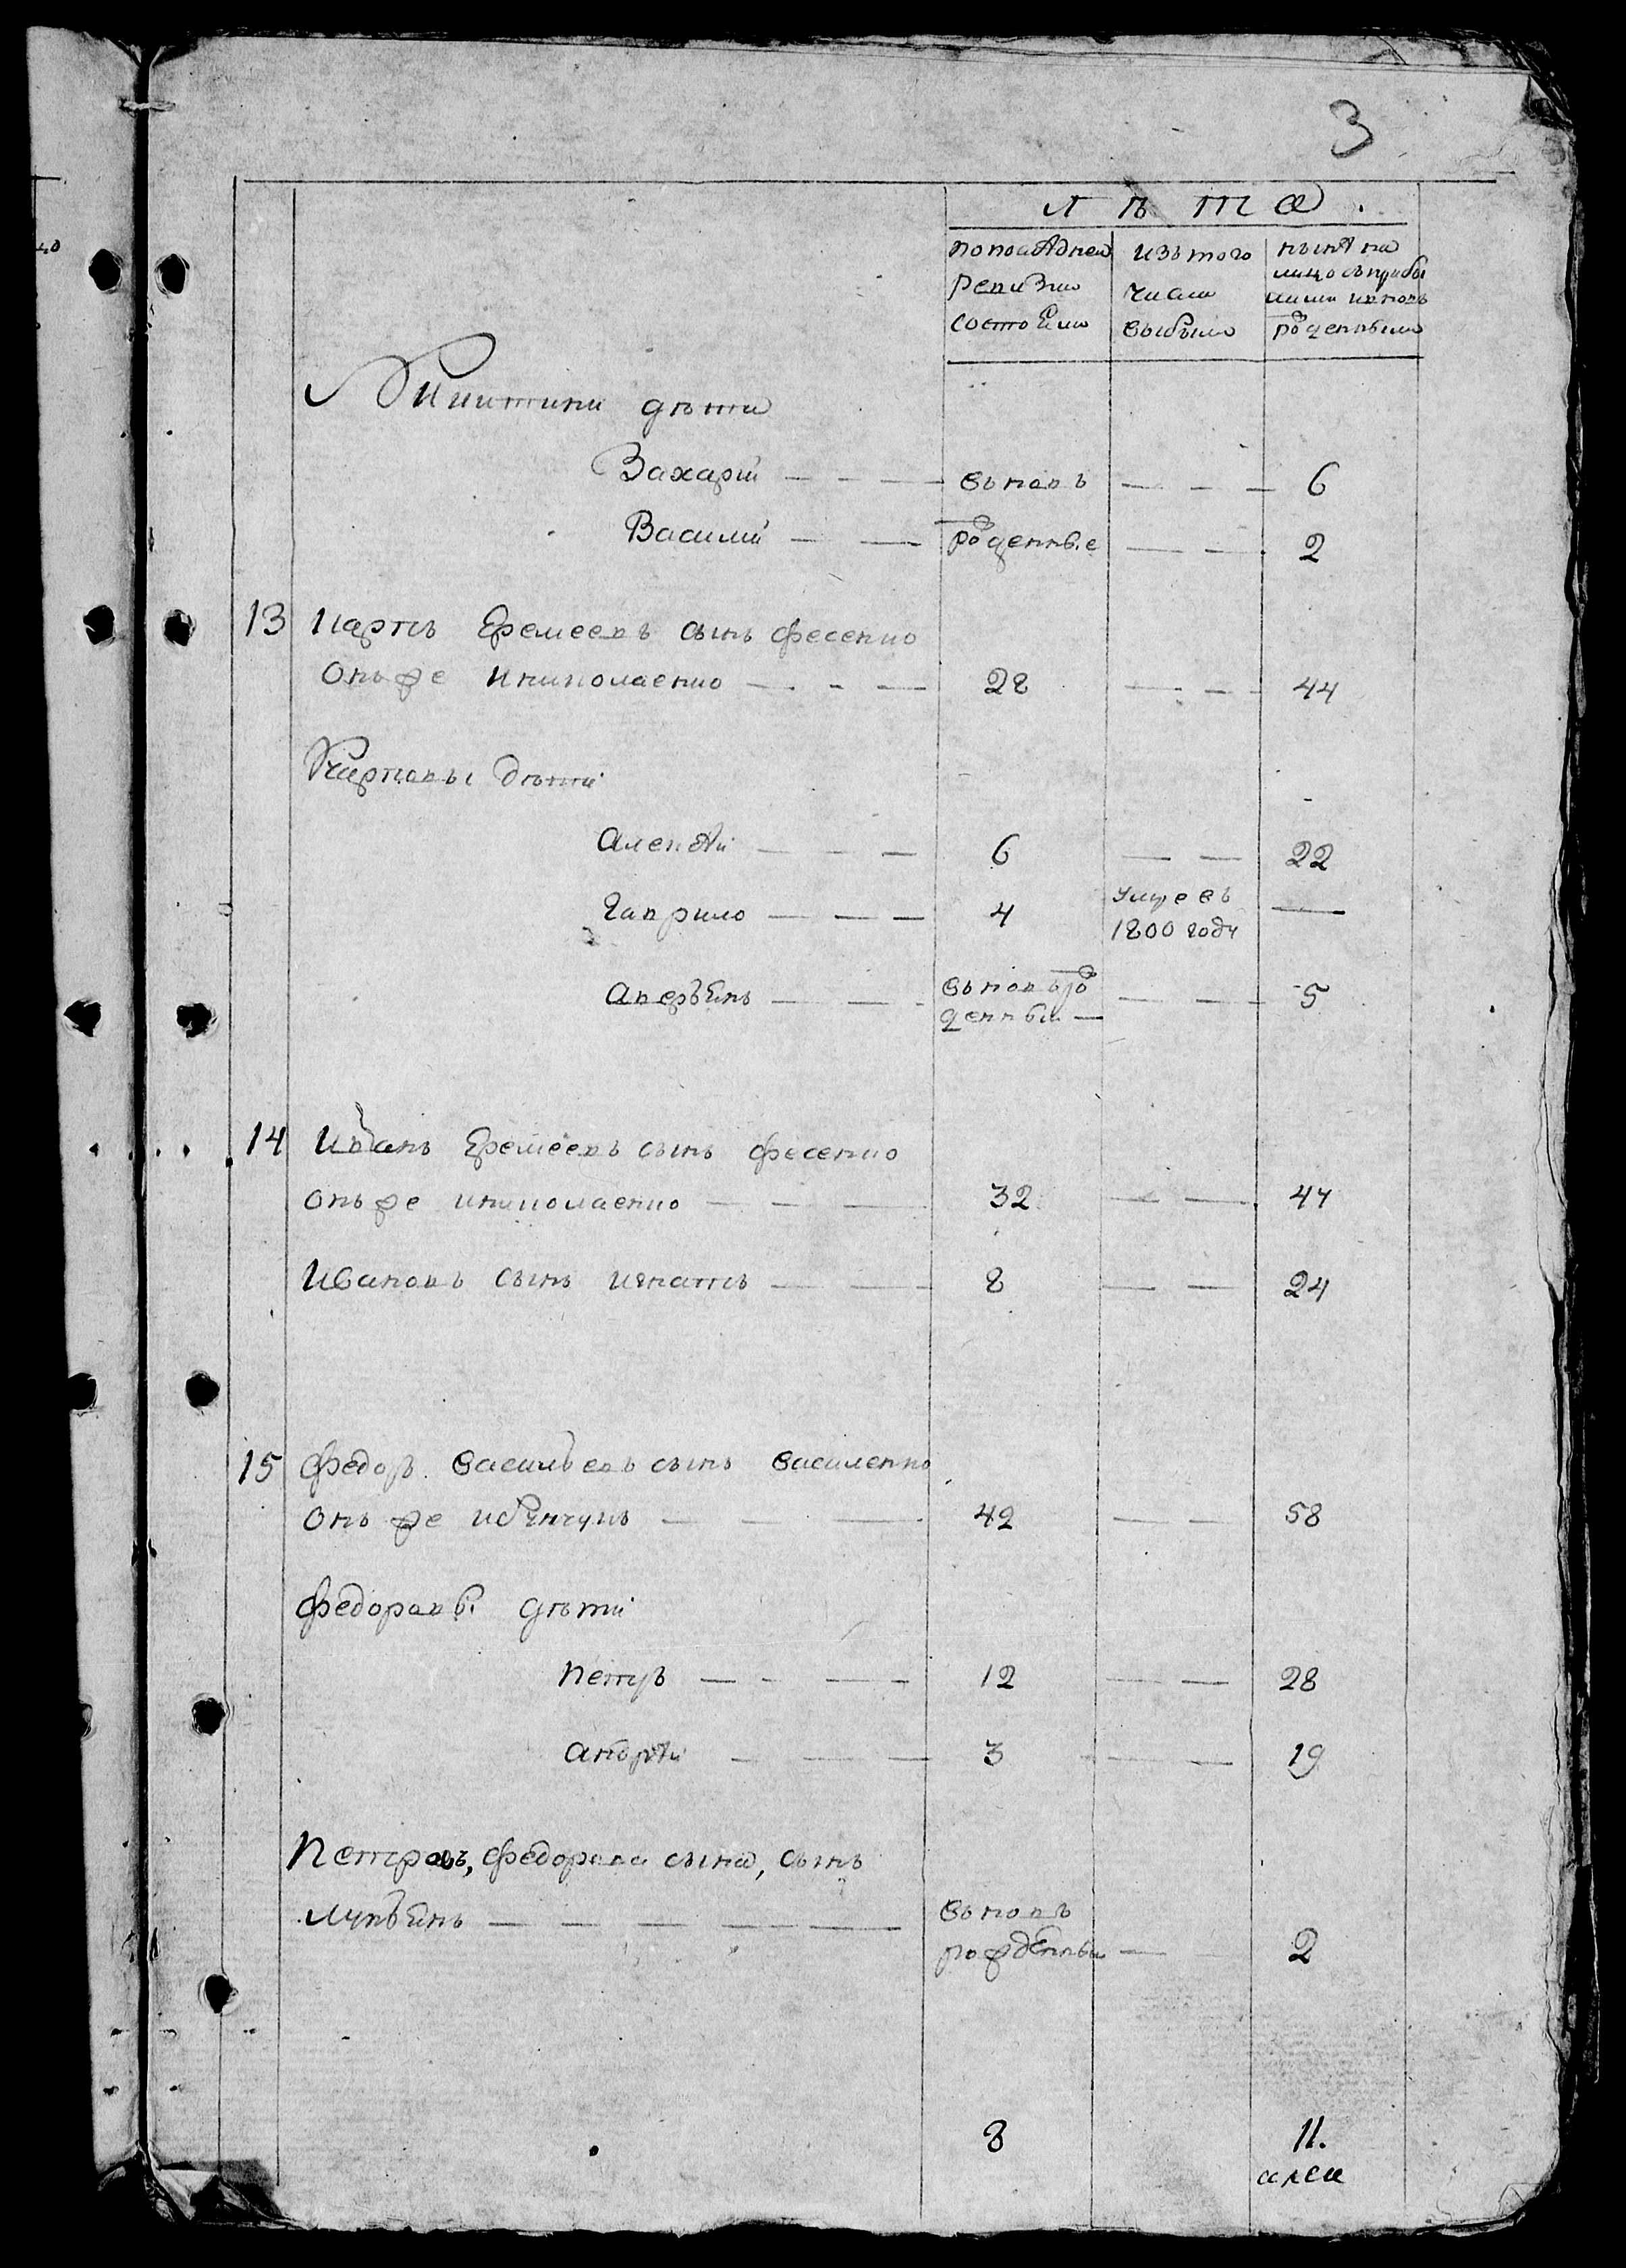 3
лѣта.
по последней
ревизии
состояли
изъ того
числа
выбыло
нынѣ на
лицо съ прибы
лыми и вновь
рожденными
Никитины дѣти
Захарій — — — вновь — — — 6
Василій — — рожденные — — 2
13 Карпъ Еремеевъ сынъ Фесенко
онъ же Николаенко — - — 28 — - — 44
Карповы дѣти
Алексѣй — — — 6 — — 22
Гаврило — — — 4 умре въ 1800 году —
Аверьянъ — — вновь рожденный — — — 5
14 Иванъ Еремеевъ сынъ Фесенко
онъ же Николаенко — — — 32 — — 47
Ивановъ сынъ Игнатъ — — 8 — — 24
15 Федоръ Васильевъ сынъ Василенко
онъ же — — — 42 — — 58
Федоровы дѣти
Петръ — - — — 12 — — 28
Андрѣй — — — 3 — — 19
Петровъ, Федорова сына, сынъ
Лукьянъ — — — — — вновь
рожденный — 2
8 11.